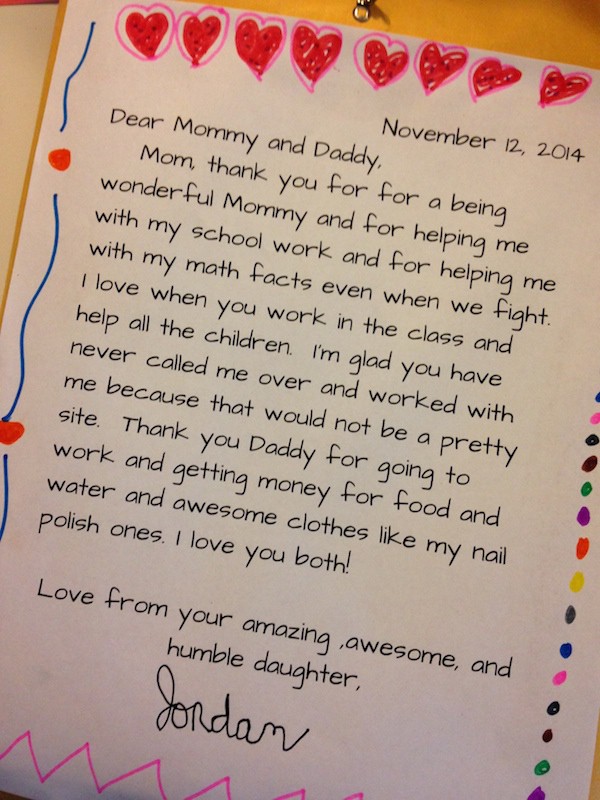 November 12, 2014
Dear Mommy and Daddy,
Mom, thank you for for a being
wonderful Mommy and for helping me
with my school work and for helping me
with my math facts even when we fight.
I love when you work in the class and
help all the children. I'm glad you have
never called me over and worked with
me because that would not be a pretty
site. Thank you Daddy for going to
work and getting money for food and
water and awesome clothes like my nail
polish ones. I love you both!
Love from your amazing ,awesome, and
humble daughter,
Jordan